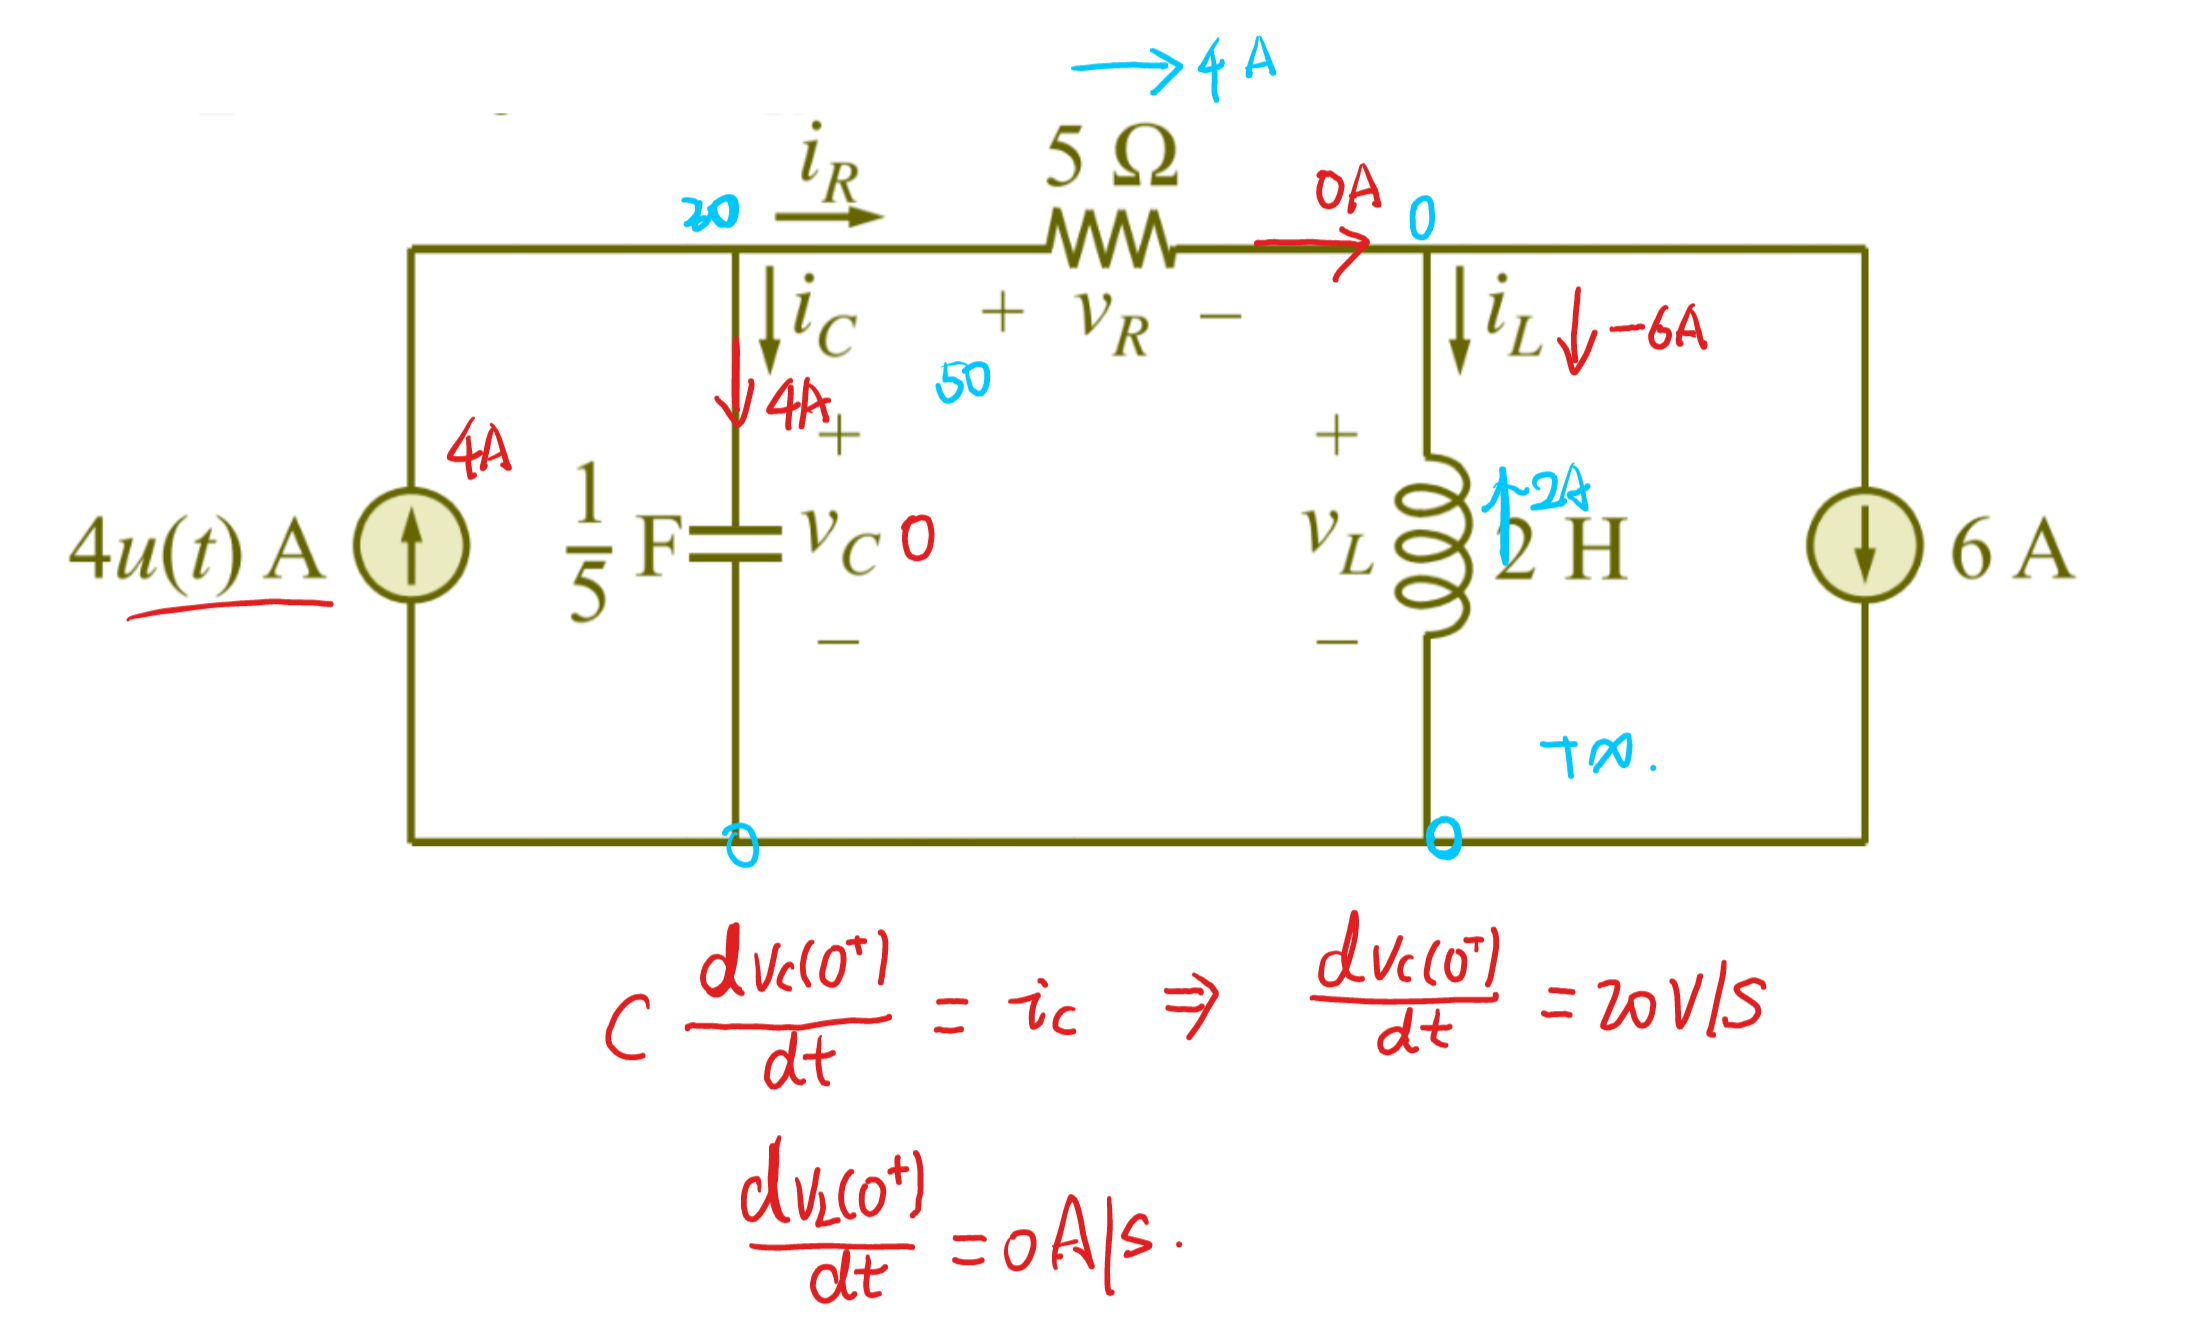 → 4 A
i_R
5 Ω
0A
20
0
i_C
+ v_R −
i_L
-6A
50
4A
4A
+
+
4u(t) A
1/5 F
v_C
0
v_L
2A
2 H
6 A
−
−
+∞.
0
0
C dv_C(0⁺)/dt = i_C ⇒ dv_C(0⁺)/dt = 20V/S
dv_L(0⁺)/dt = 0A/S.